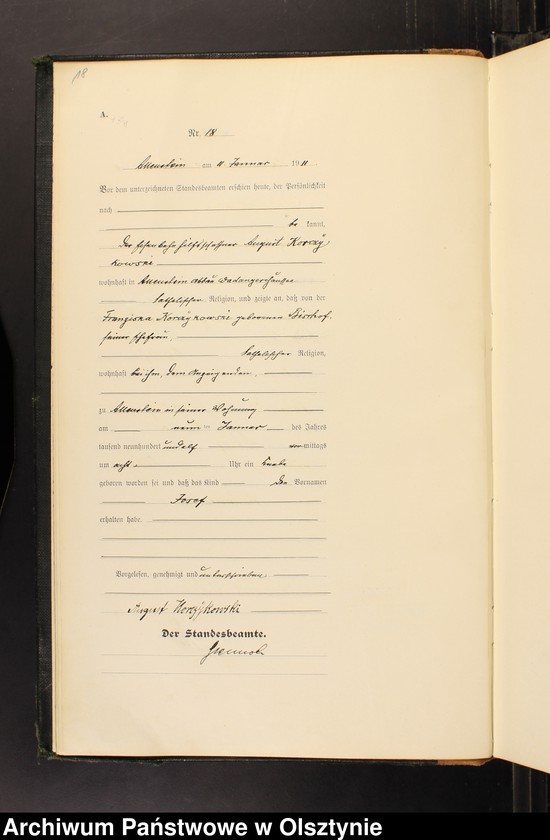 18
A.
Nr. 18
Allenstein am 11 Januar 1911
Vor dem unterzeichneten Standesbeamten erschien heute, der Persönlichkeit
nach
be kannt,
der Eisenbahnhilfsschaffner August Korczy
kowski
wohnhaft in Allenstein Wadangerchaussee
katholischer Religion, und zeigte an, daß von der
Franziska Korczykowski geborenen Bischof,
seiner Ehefrau,
katholischer Religion,
wohnhaft bei ihm, dem Anzeigenden,
zu Allenstein in seiner Wohnung
am neun ten Januar des Jahres
tausend neunhundert und elf vor mittags
um acht Uhr ein Knabe
geboren worden sei und daß das Kind den Vornamen
Josef
erhalten habe.
Vorgelesen, genehmigt und unterschrieben.
August Korzykowski
Der Standesbeamte.
Archiwum Państwowe w Olsztynie